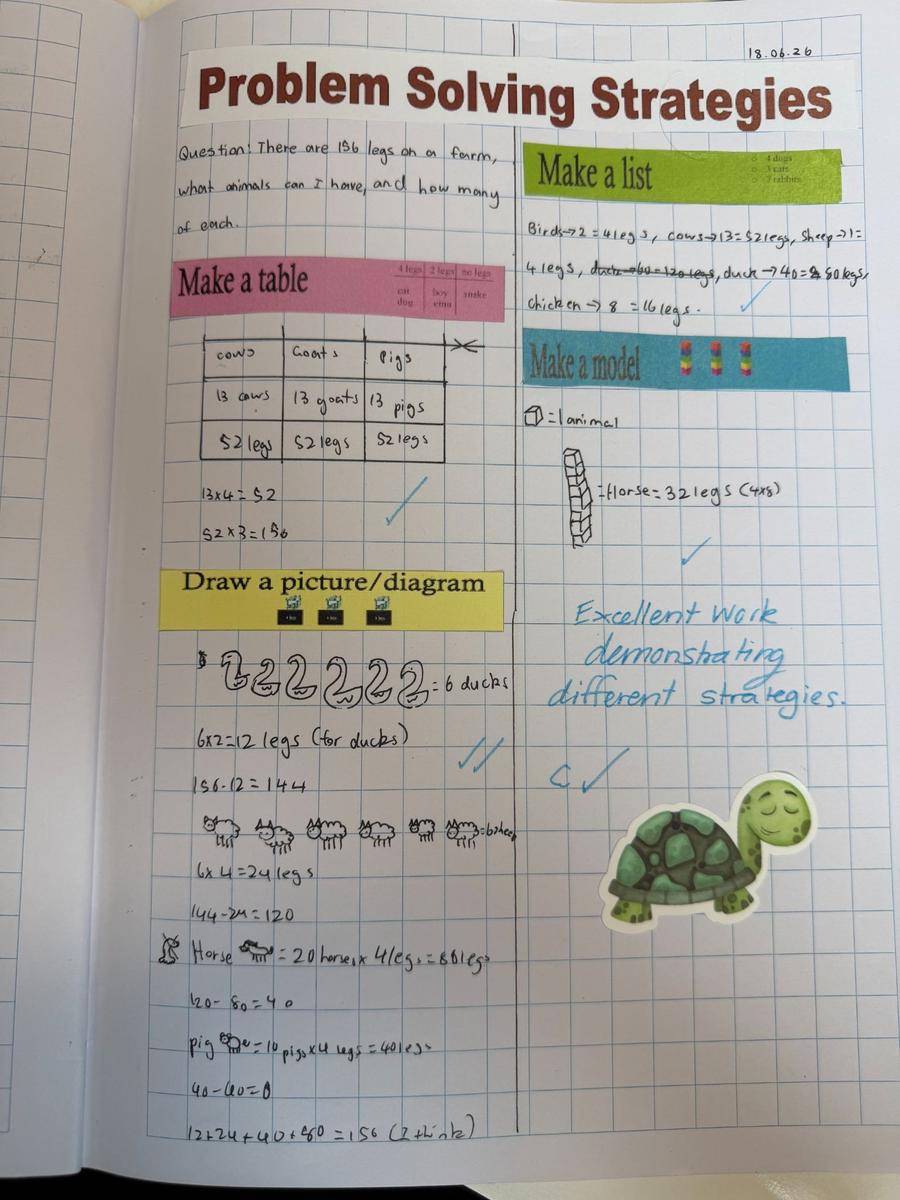 18.06.26
Problem Solving Strategies
Question: There are 156 legs on a farm,
what animals can I have, and how many
of each.
Make a table
4 legs 2 legs no legs
cat boy snake
dog emu
cows Goats Pigs
13 cows 13 goats 13 pigs
52 legs 52 legs 52 legs
13x4 = 52
52x3=156
Draw a picture/diagram
= 6 ducks
6x2=12 legs (for ducks)
156-12=144
=6 sheep
6x4=24 legs
144-24=120
Horse = 20 horses x 4 legs = 80 legs
120-80=40
pig = 10 pigs x 4 legs = 40 legs
40-40=0
12+24+40+80=156 (I think)
Make a list
4 dogs
3 cats
7 rabbits
Birds→2=4legs, cows→13=52legs, Sheep→1=
4 legs, duck→60=120 legs, duck→40= 80 legs,
chicken→8=16 legs.
Make a model
=1 animal
=Horse=32 legs (4x8)
Excellent work
demonstrating
different strategies.
C